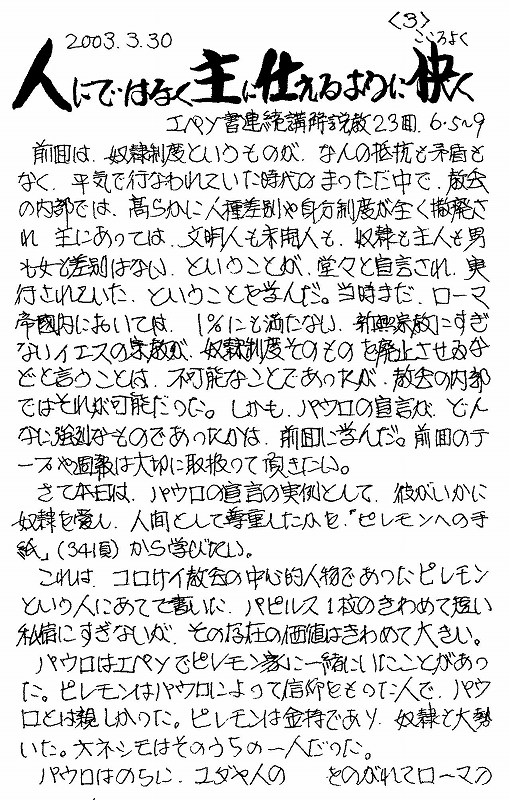 〈3〉
2003.3.30
こころよく
人にではなく主に仕えるように快く
エペソ書連続講解説教23回. 6・5〜9
前回は、奴隷制度というものが、なんの抵抗も矛盾も
なく、平気で行なわれていた時代のまっただ中で、教会
の内部では、高らかに人種差別や身分制度が全く撤廃さ
れ 主にあっては、文明人も未開人も、奴隷も主人も男
も女も差別はない、ということが、堂々と宣言され、実
行されていた、ということを学んだ。当時まだ、ローマ
帝國内においては、1%にも満たない、新興宗教にすぎ
ないイエスの宗教が、奴隷制度そのものを廃止させるな
どと言うことは、不可能なことであったが、教会の内部
ではそれが可能だった。しかも、パウロの宣言が、どん
なに強烈なものであったかは、前回に学んだ。前回のテ
ープや週報は大切に取扱って頂きたい。
さて本日は、パウロの宣言の実例として、彼がいかに
奴隷を愛し、人間として尊重したかを、「ピレモンへの手
紙」(341頁)から学びたい。
これは、コロサイ教会の中心的人物であったピレモン
という人にあてて書いた、パピルス1枚のきわめて短い
私信にすぎないが、その存在の価値はきわめて大きい。
パウロはエペソでピレモン家に一緒にいたことがあっ
た。ピレモンはパウロによって信仰をもった人で、パウ
ロとは親しかった。ピレモンは金持であり、奴隷も大勢
いた。オネシモはそのうちの一人だった。
パウロはのちに、ユダヤ人の をのがれてローマの